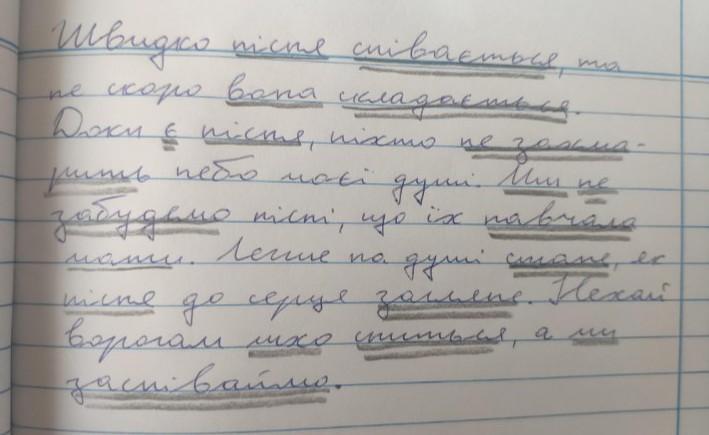 Швидко пісня співається, та
не скоро вона складається.
Доки є пісня, ніхто не захма-
рить небо моєї душі. Ми не
забудемо пісні, що їх навчала
мати. Легше на душі стане, як
пісня до серця загляне. Нехай
ворогам лихо сниться, а ми
заспіваймо.